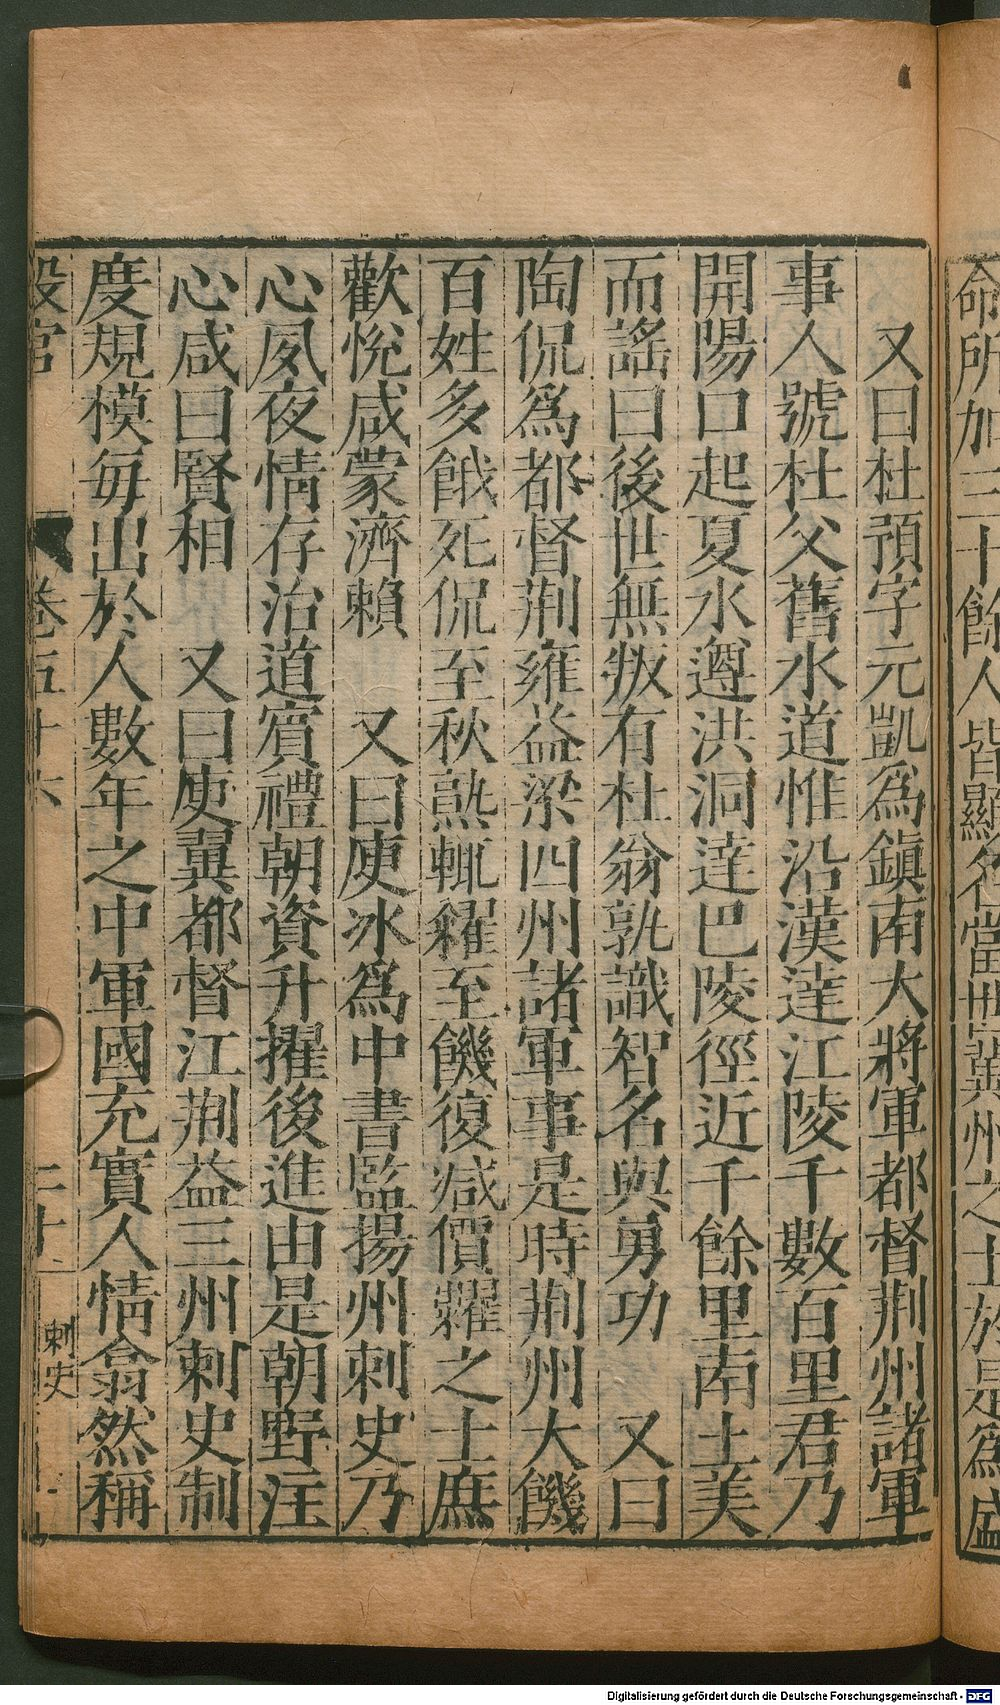 命所加二十餘人皆顯名當世冀州之士於是為盛
又曰杜預字元凱為鎮南大將軍都督荆州諸軍
事人號杜父舊水道惟沿漢達江陵千數百里君乃
開陽口起夏水遵洪洞達巴陵徑近千餘里南土美
而謠曰後世無叛有杜翁孰識智名與勇功 又曰
陶侃為都督荆雍益梁四州諸軍事是時荆州大饑
百姓多餓死侃至秋熟輒糴至饑復减價糶之士庶
歡悅咸蒙濟賴 又曰庾冰為中書監揚州刺史乃
心夙夜情存治道賓禮朝資升擢後進由是朝野注
心咸曰賢相 又曰庾翼都督江荆益三州刺史制
度規模每出於人數年之中軍國充實人情翕然稱
設官 卷五十六 二十 刺史
Digitalisierung gefördert durch die Deutsche Forschungsgemeinschaft - DFG